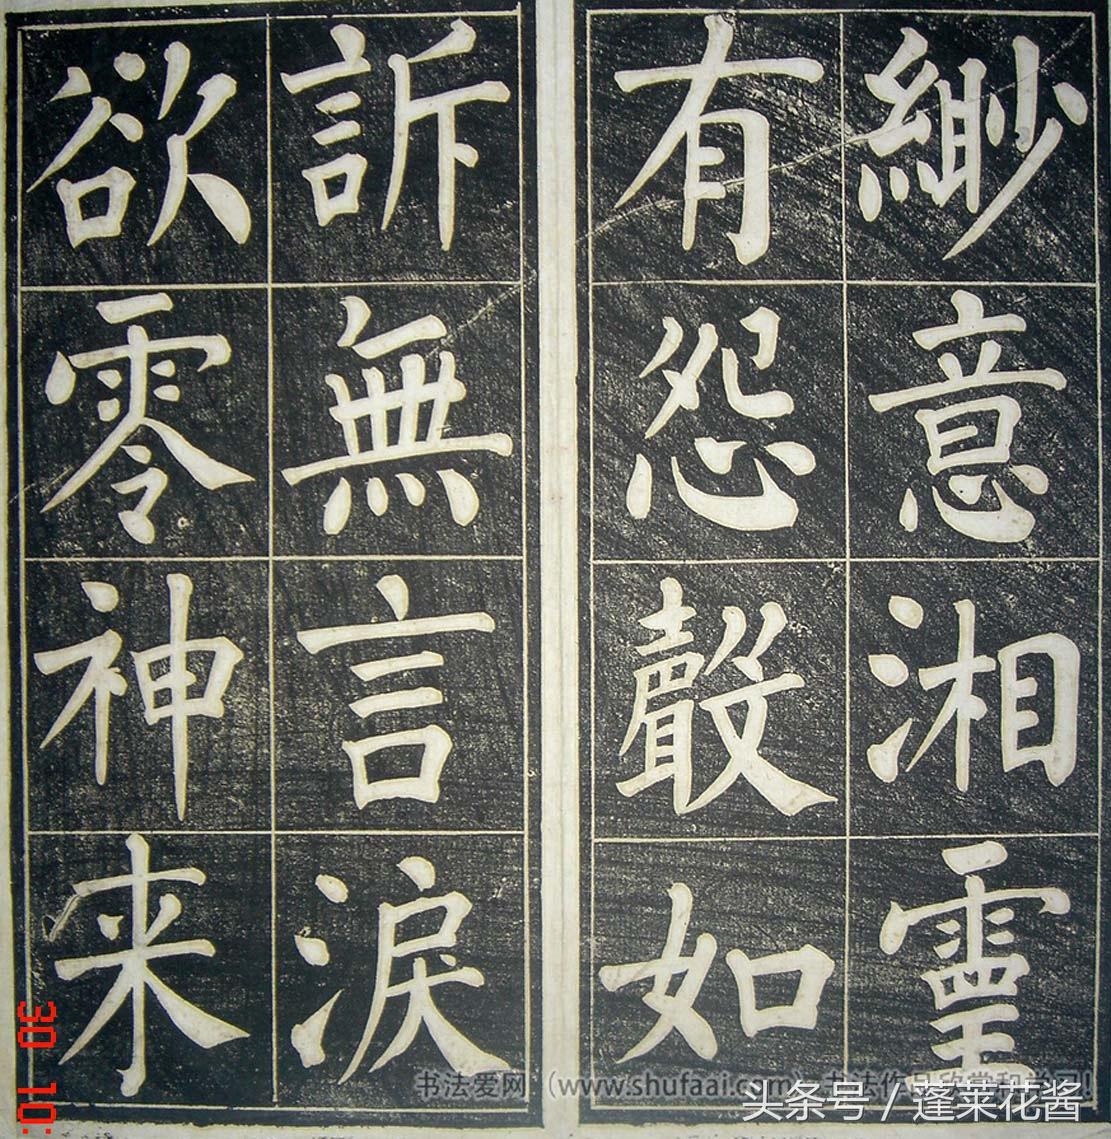 緲意湘靈
有怨聲如
訴無言淚
欲零神来
书法爱网（www.shufaai.com）书法作品欣赏和学习！
头条号 / 蓬莱花酱
30 10: